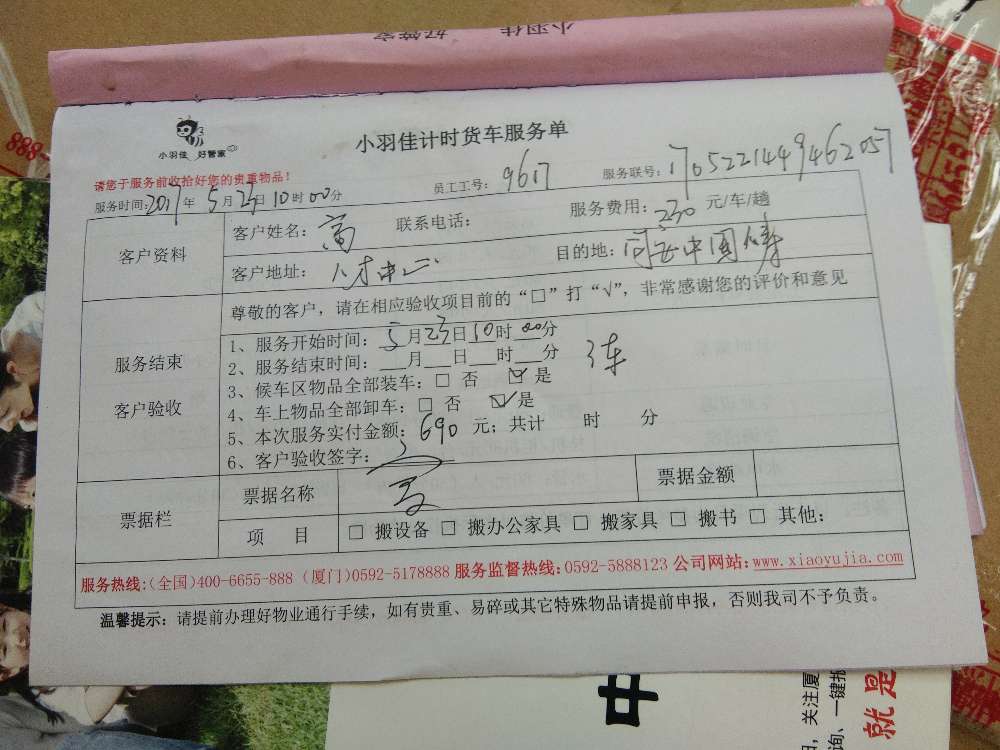 小羽佳 好管家
888
小羽佳 好管家
小羽佳计时货车服务单
请您于服务前收拾好您的贵重物品!
服务时间:2017年5月23日10时00分 员工工号:9617 服务联号:170522144946205
客户资料 客户姓名: 联系电话: 服务费用:230元/车/趟
客户地址: 目的地:同安中国
尊敬的客户,请在相应验收项目前的“□”打“√”,非常感谢您的评价和意见
服务结束
客户验收
1、服务开始时间:5月23日10时00分
2、服务结束时间:___月___日___时___分
3、候车区物品全部装车:□ 否 ☑ 是
3车
4、车上物品全部卸车:□ 否 ☑ 是
5、本次服务实付金额:690元;共计 时 分
6、客户验收签字:
票据栏 票据名称 票据金额
项 目 □ 搬设备 □ 搬办公家具 □ 搬家具 □ 搬书 □ 其他:
服务热线:(全国)400-6655-888 (厦门)0592-5178888 服务监督热线:0592-5888123 公司网站:www.xiaoyujia.com
温馨提示:请提前办理好物业通行手续,如有贵重、易碎或其它特殊物品请提前申报,否则我司不予负责。
中
就是